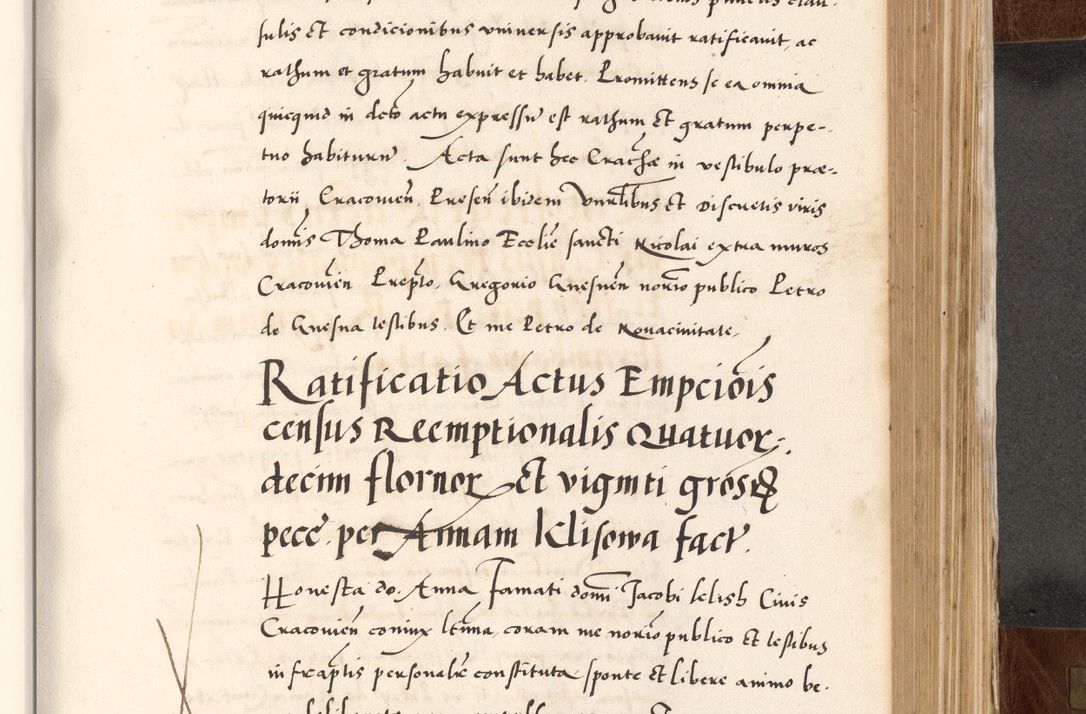 sulis et condicionibus universis approbavit ratificavit, ac
rathum et gratum habuit et habet. Promittens se ea omnia
quicquid in dcto actu expressu est rathum et gratum perpe-
tuo habituru. Acta sunt hec Crachae in vestibulo præ-
torii Cracovien, Presen ibidem vnrlibus et Discretis viris
domis Thoma Paulino Ecclie sancti Nicolai extra muros
Cracovien Prepto, Gregorio Gnesnen norio publico Petro
de Gnesna testibus. Et me Petro de Novacivitate.
Ratificatio Actus Empciois
census Reemptionalis Quatuor-
decim flornor et viginti gros
pece. per Annam Klisowa fact.
Honesta do. Anna Famati domi Jacobi lelish Civis
Cracovien coniux ltima, coram me norio publico et testibus
infraptis personalr constituta sponte et libere animo be-